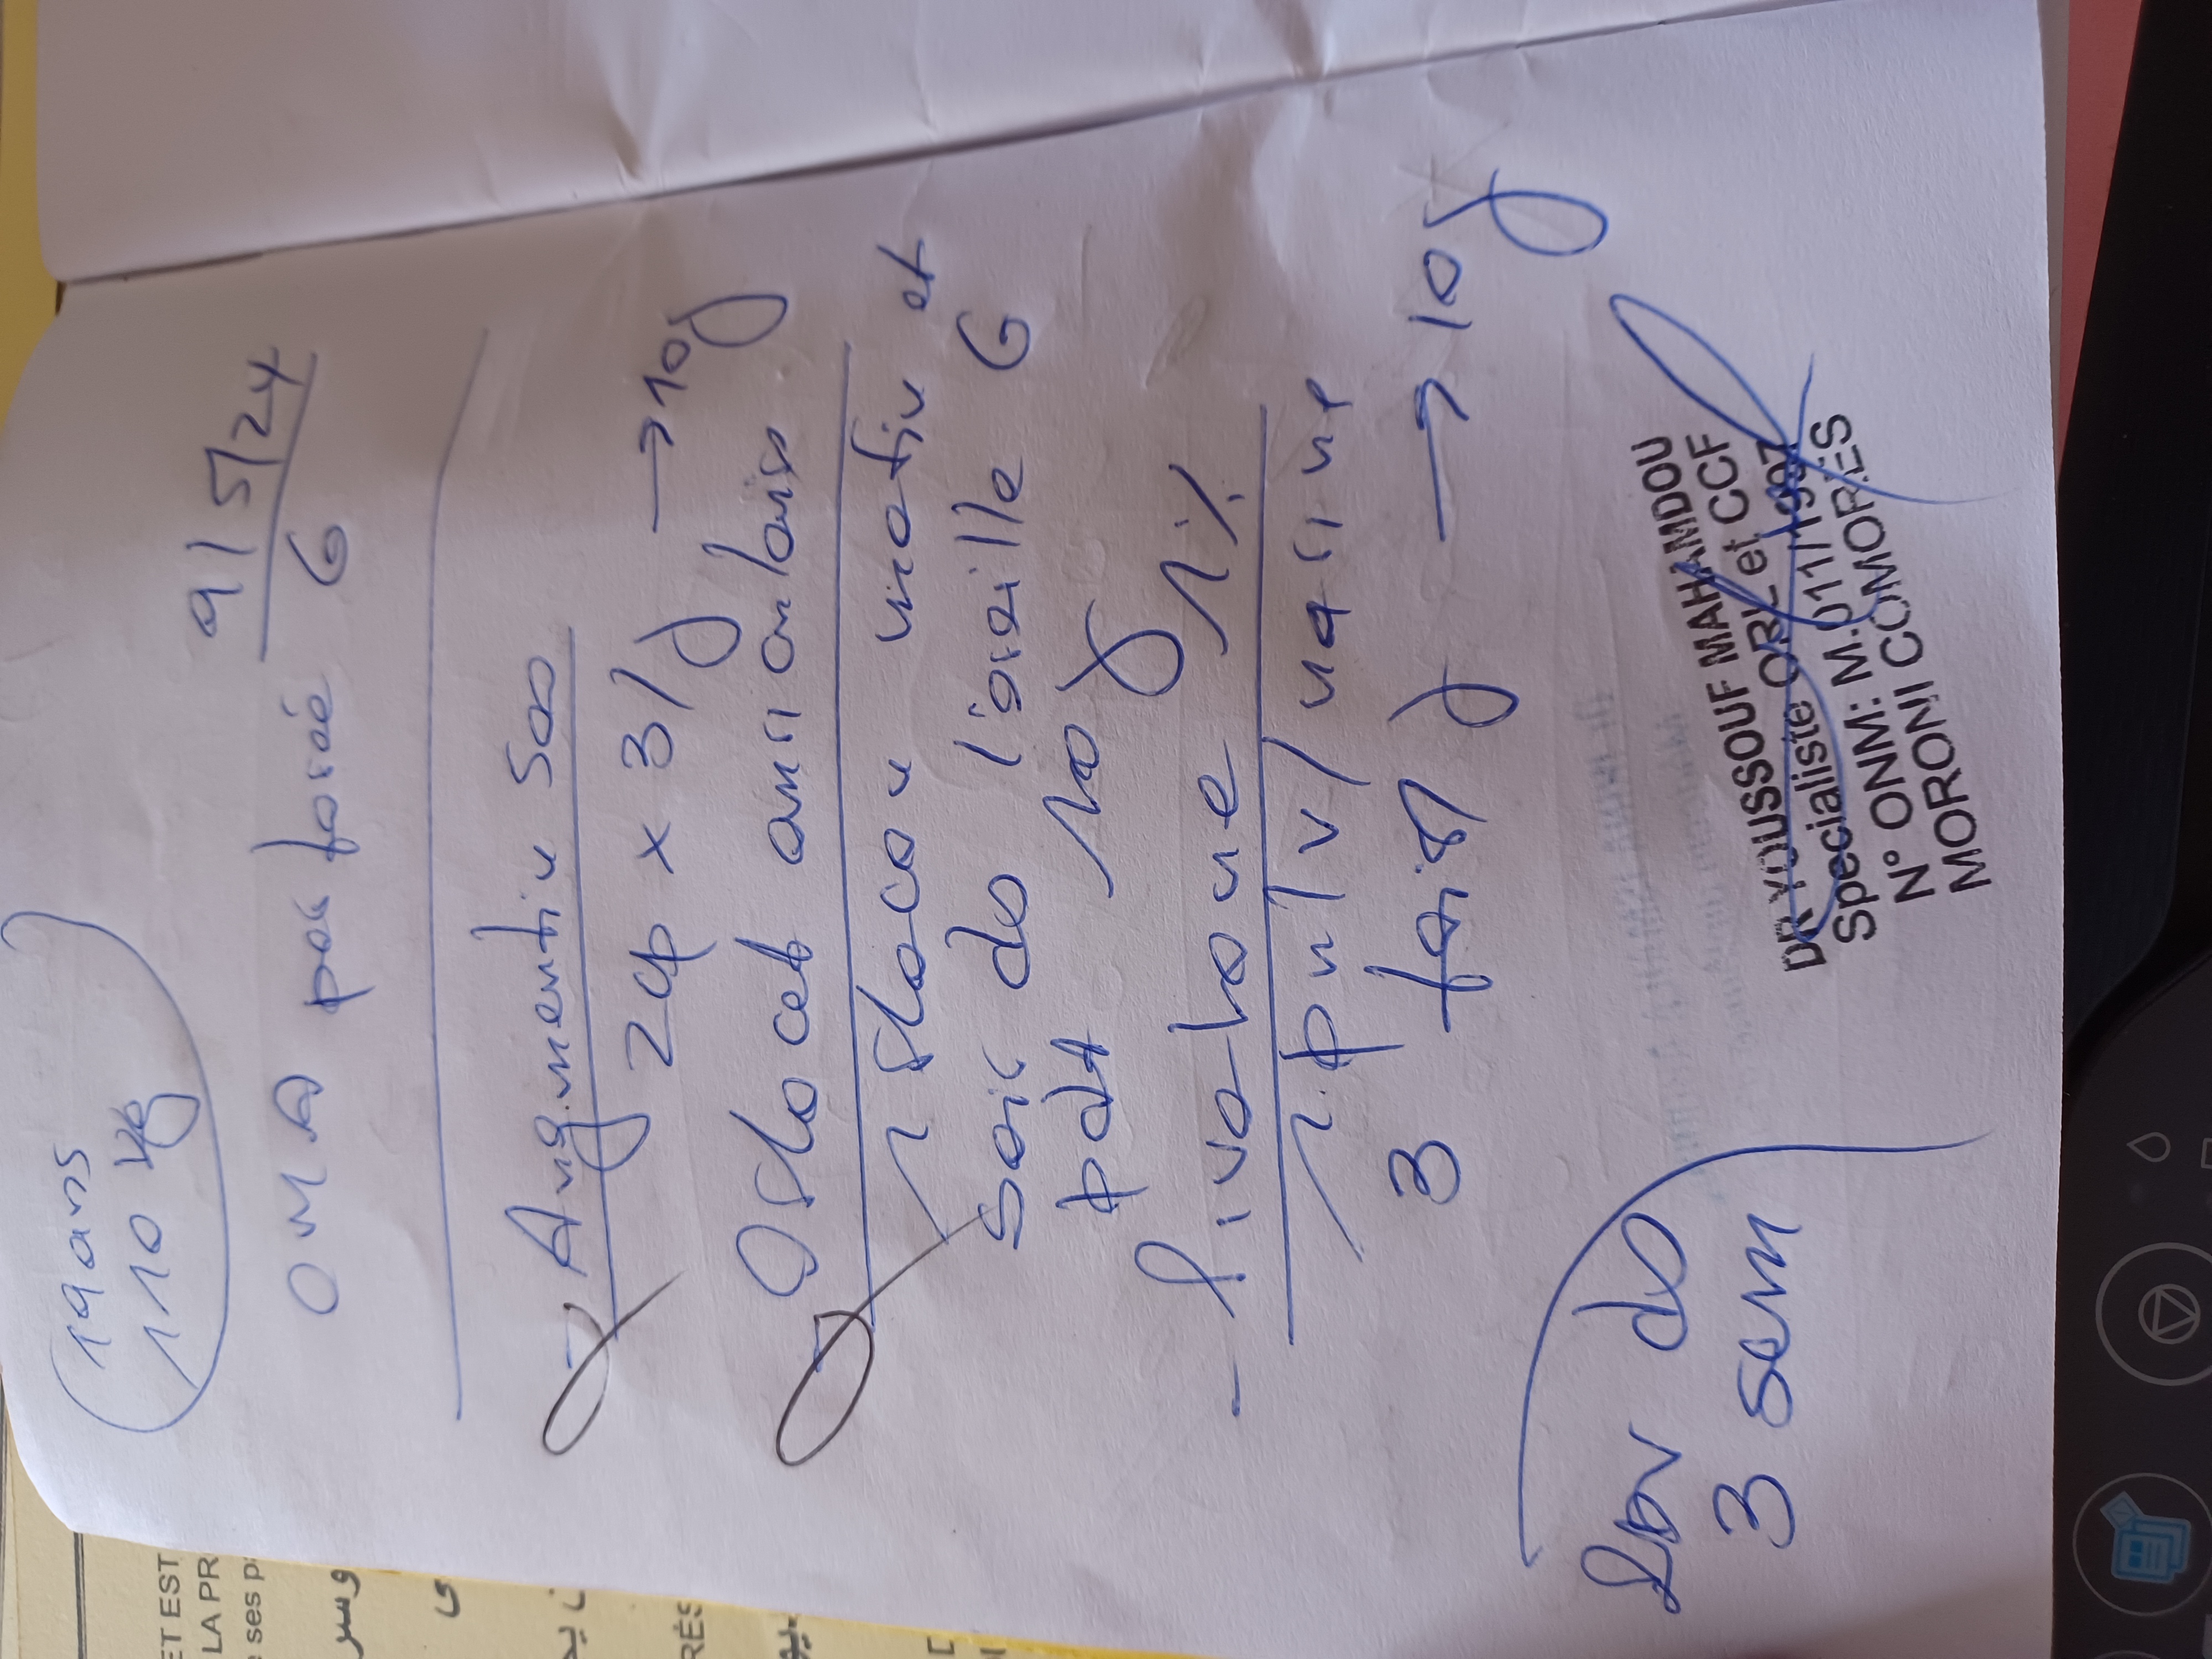 19 ans
110 kg
9/5/24
OMA perforée G
- Augmentin 500
2cp x 3/j → 10j
- Oflocet auriculaire
1 flacon matin et
soir do l'oreille G
pdt 10j
- Rivalone 1%
1 pulv/narine
3 fois/j → 10j
Rdv do
3 sem
DR YOUSSOUF MAHAMDOU
Spécialiste ORL et CCF
N° ONM: M.011/1997
MORONI COMORES
ET EST
LA PR
e ses p
RÈS